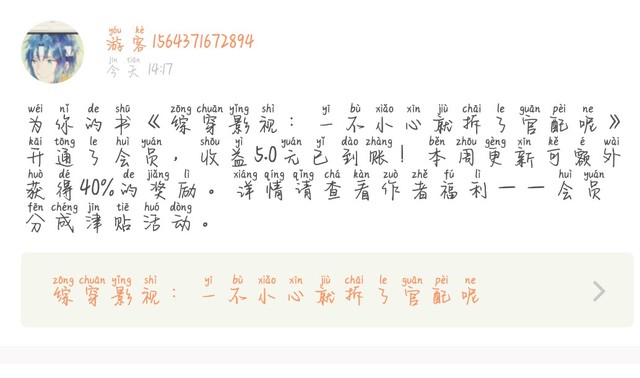 yóu kè
游客1564371672894
jīn tiān
今天 14:17
wéi nǐ de shū zōng chuān yǐng shì yī bù xiǎo xīn jiù chāi le guān pèi ne
为你的书《综穿影视：一不小心就拆了官配呢》
kāi tōng le huì yuán shōu yì yuán yǐ dào zhàng běn zhōu gèng xīn kě é wài
开通了会员，收益5.0元已到账！本周更新可额外
huò dé de jiǎng lì xiáng qíng qǐng chá kàn zuò zhě fú lì huì yuán
获得40%的奖励。详情请查看作者福利——会员
fēn chéng jīn tiē huó dòng
分成津贴活动。
zōng chuān yǐng shì yī bù xiǎo xīn jiù chāi le guān pèi ne
综穿影视：一不小心就拆了官配呢